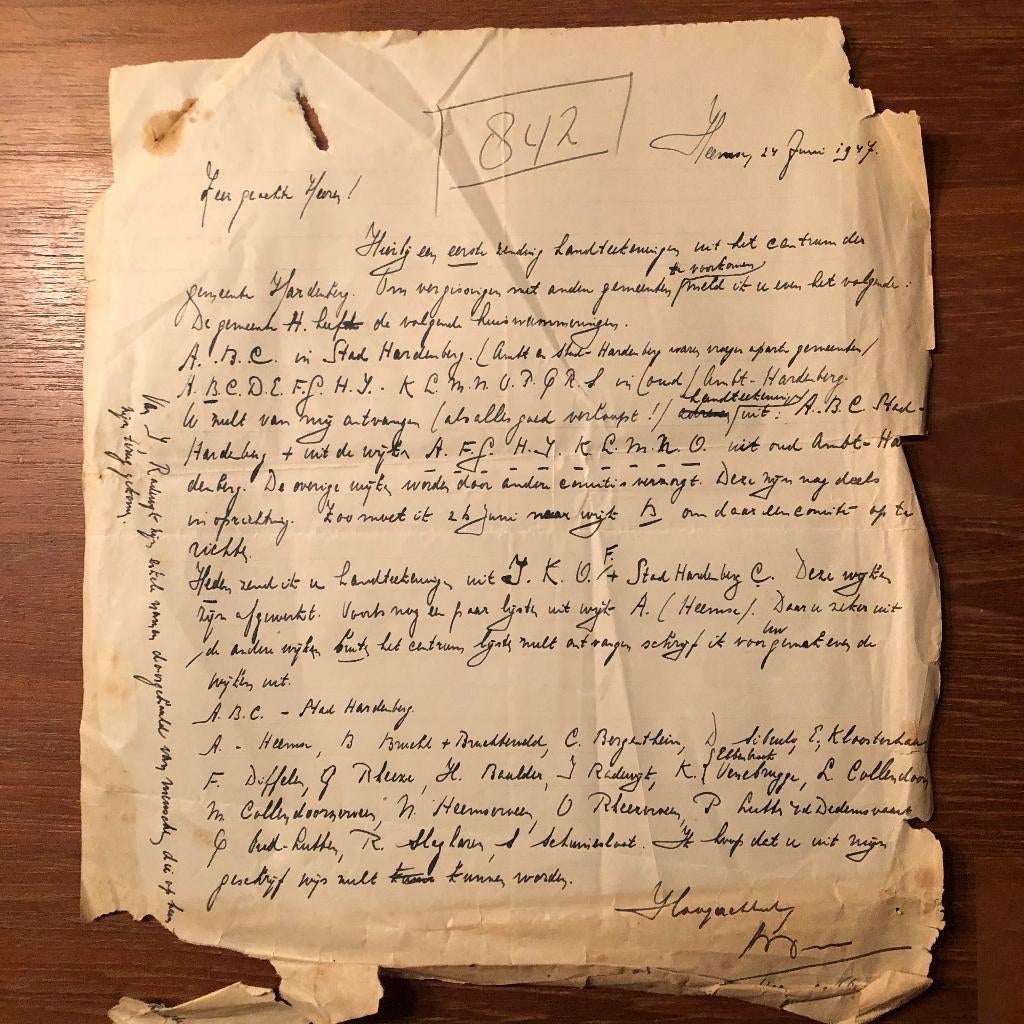 842
Heemse, 24 Juni 1947.
Zeer geachte Heeren!
Hierbij een eerste zending handteekeningen uit het centrum der
te voorkomen
gemeente Hardenberg. Om vergissingen met andere gemeenten meld ik u even het volgende:
De gemeente H. heeft de volgende huisnummeringen.
A. B. C. in Stad Hardenberg. (Ambt en Stad-Hardenberg waren vroeger aparte gemeenten)
A. B. C. D. E. F. G. H. I. K L M. N. O. P. Q R. S in (oud) Ambt-Hardenberg.
handteekeningen
U zult van mij ontvangen (als alles goed verloopt!) uit: A. B. C Stad-
Hardenberg + uit de wijken A. F. G. H. I. K L. M. N. O. uit oud Ambt-Har
denberg. De overige wijken worden door andere comités verzorgd. Deze zijn nog deels
in oprichting. Zoo moet ik 26 Juni naar wijk B om daar een comité op te
richten.
Heden zend ik u handteekeningen uit I. K. O. F. + Stad Hardenberg C. Deze wijken
zijn afgewerkt. Voorts nog een paar lijsten uit wijk A. (Heemse). Daar u zeker uit
de andere wijken buiten het centrum lijsten zult ontvangen schrijf ik voor uw gemak even de
wijken uit.
A. B. C. - Stad Hardenberg.
A. - Heemse, B Brucht + Bruchterveld, C. Bergentheim, D Sibculo, E. Kloosterhaar
F. Diffelen, G Rheeze, H. Baalder, I Radewijk, K. Ebbenbroek Venebrugge, L. Collendoorn
M Collendoornerveen, N. Heemserveen, O Rheezerveen, P Lutten a/d Dedemsvaart
Q Oud-Lutten, R. Slagharen, S Schuinesloot. Ik hoop dat u uit mijn
geschrijf wijs zult kunnen worden.
Hoogachtend,
Van I Radewijk zijn enkele namen doorgehaald van menschen die op hun
zijn teruggekomen.